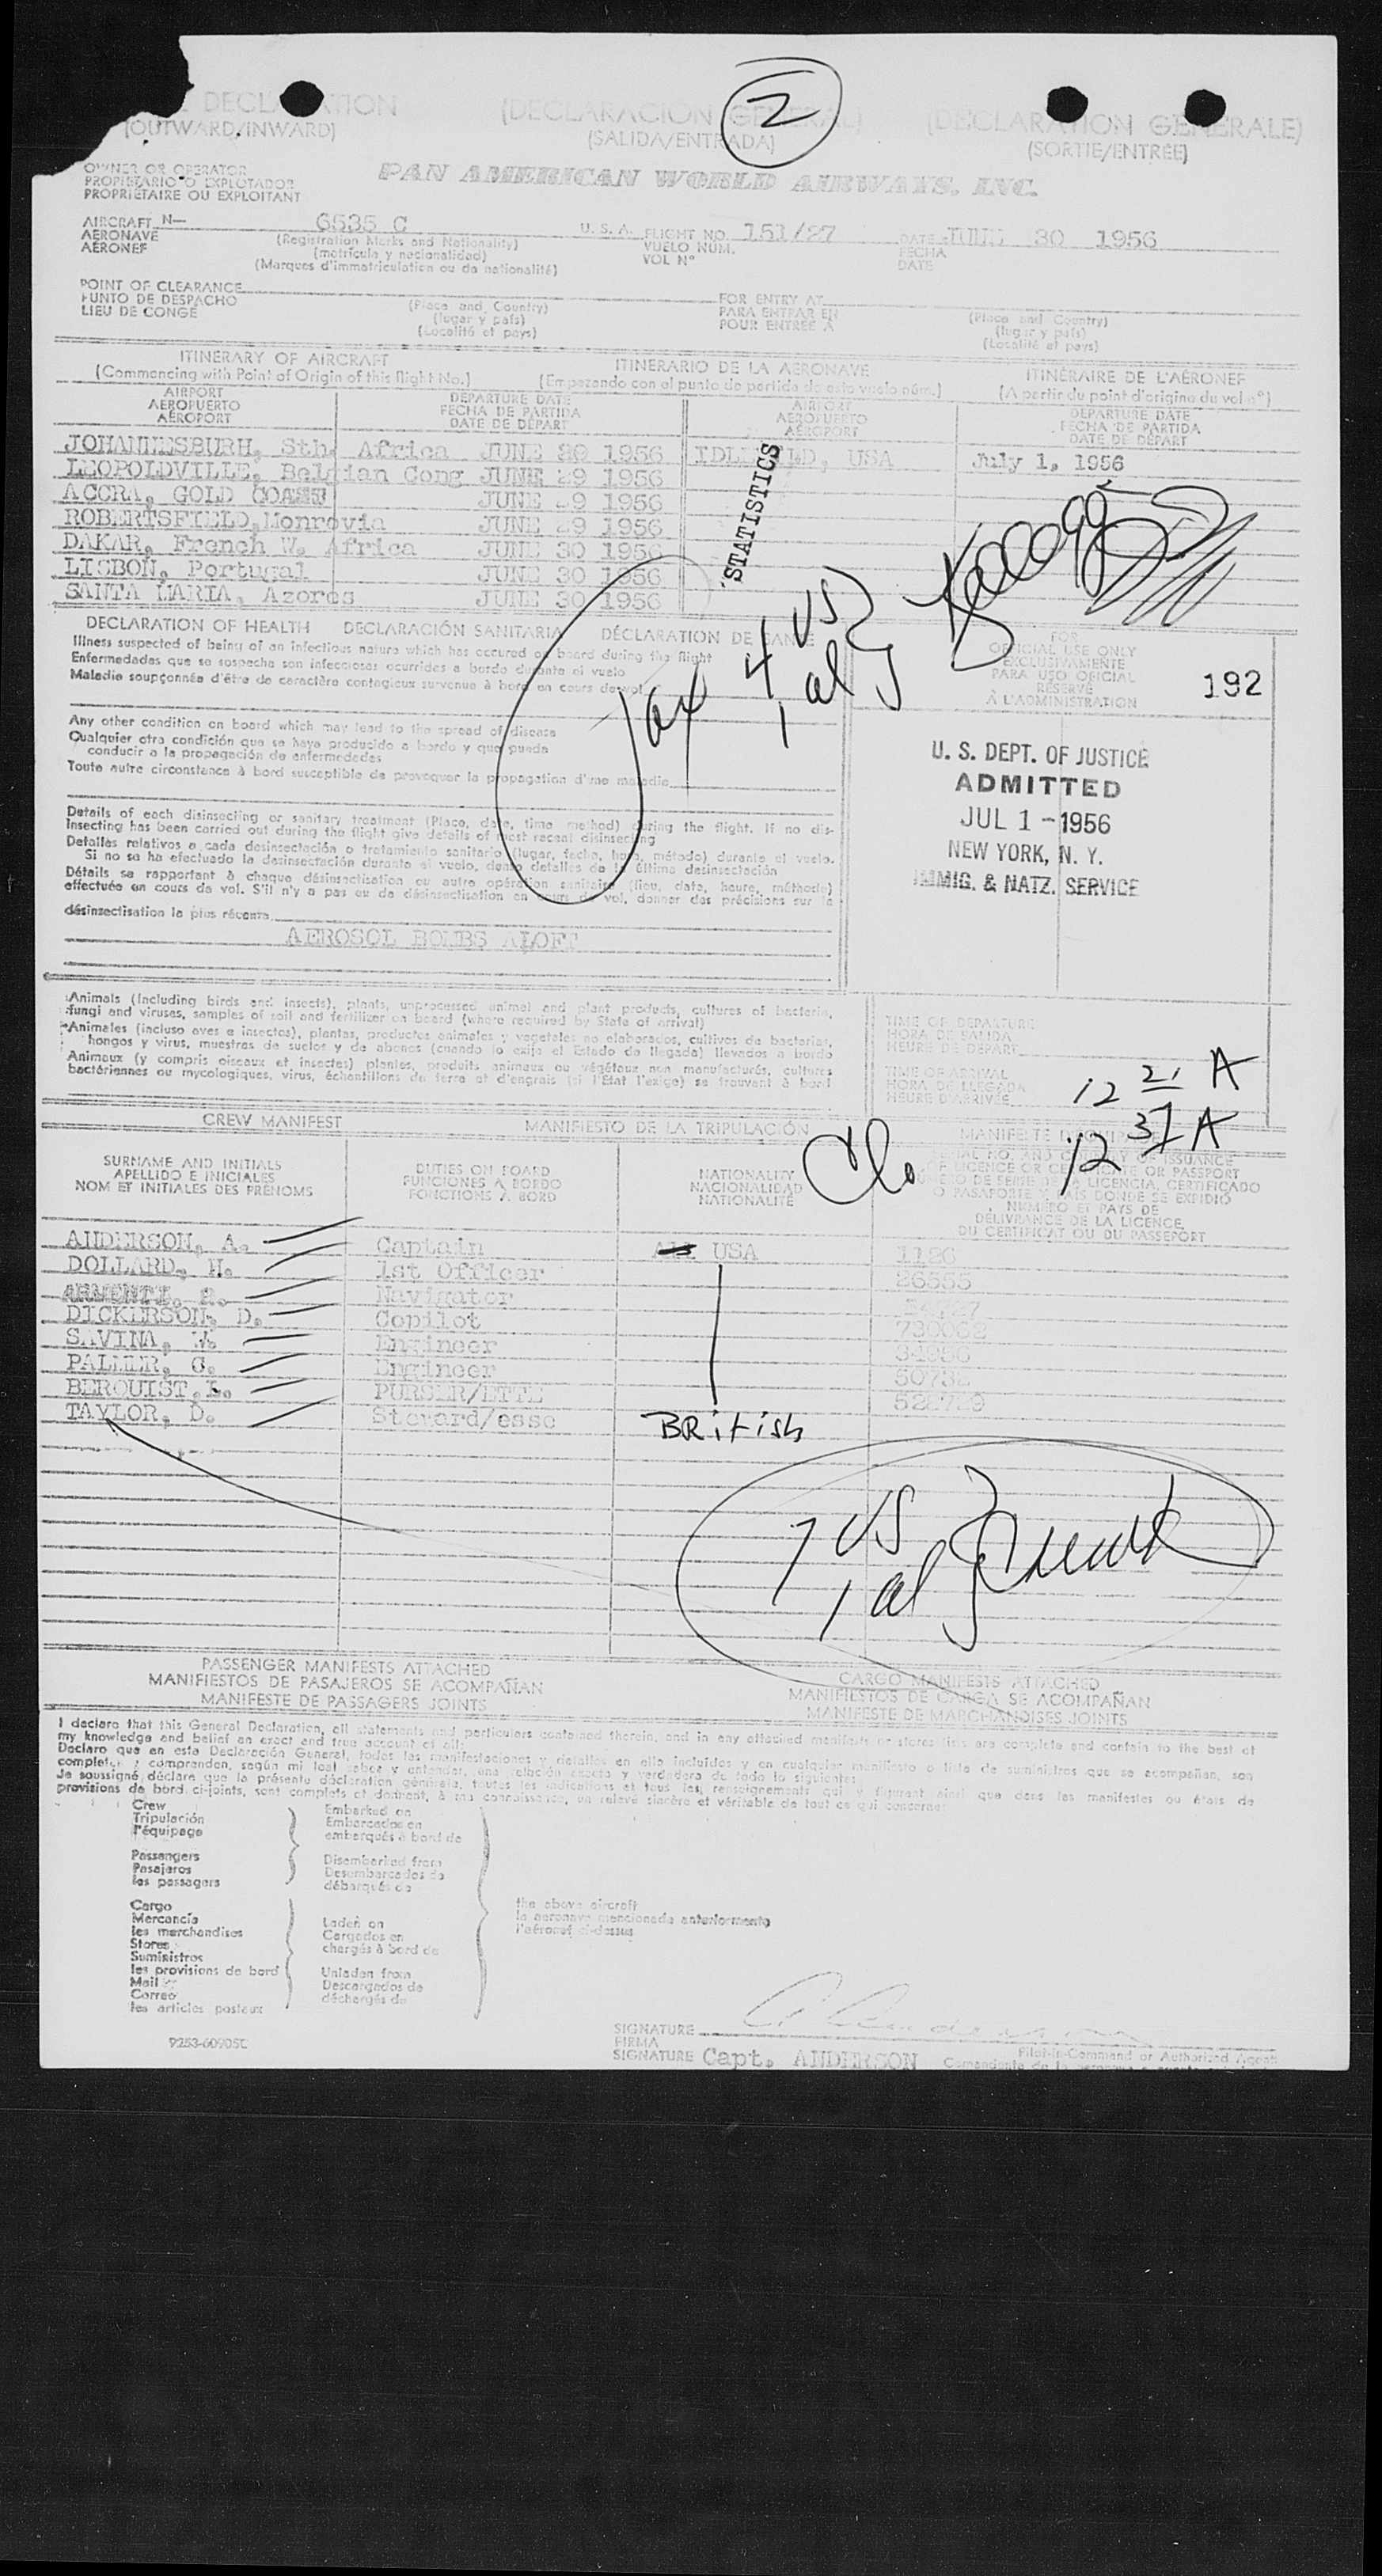 DECLARATION (DECLARACIÓN GENERAL) (DECLARATION GENERALE)
(OUTWARD/INWARD) (SALIDA/ENTRADA) (SORTIE/ENTRÉE)
2
OWNER OR OPERATOR
PROPIETARIO O EXPLOTADOR
PROPRIÉTAIRE OU EXPLOITANT
PAN AMERICAN WORLD AIRWAYS, INC.
AIRCRAFT N- 6535 C U. S. A. FLIGHT NO. 151/27 DATE JUNE 30 1956
AERONAVE (Registration Marks and Nationality) VUELO NUM. FECHA
AÉRONEF (matrícula y nacionalidad) VOL N° DATE
(Marques d'immatriculation ou de nationalité)
POINT OF CLEARANCE FOR ENTRY AT
PUNTO DE DESPACHO (Place and Country) PARA ENTRAR EN (Place and Country)
LIEU DE CONGÉ (lugar y país) POUR ENTRÉE À (lugar y país)
(Localité et pays) (Localité et pays)
ITINERARY OF AIRCRAFT ITINERARIO DE LA AERONAVE ITINÉRAIRE DE L'AÉRONEF
(Commencing with Point of Origin of this flight No.) (Empezando con el punto de partida de este vuelo núm.) (A partir du point d'origine du vol n°)
AIRPORT DEPARTURE DATE AIRPORT DEPARTURE DATE
AEROPUERTO FECHA DE PARTIDA AEROPUERTO FECHA DE PARTIDA
AÉROPORT DATE DE DÉPART AÉROPORT DATE DE DÉPART
JOHANNESBURH, Sth. Africa JUNE 1956 IDLEWILD, USA July 1, 1956
LEOPOLDVILLE, Belgian Cong JUNE 29 1956
ACCRA, GOLD COAST JUNE 29 1956
ROBERTSFIELD, Monrovia JUNE 29 1956
DAKAR, French W. Africa JUNE 30 1956
LISBON, Portugal JUNE 30 1956
SANTA MARIA, Azores JUNE 30 1956
STATISTICS
4 US
1 al
DECLARATION OF HEALTH DECLARACIÓN SANITARIA DÉCLARATION DE SANTE
Illness suspected of being of an infectious nature which has occured on board during the flight
Enfermedades que se sospecha son infecciosas ocurridas a bordo durante el vuelo
Maladie soupçonnée d'être de caractère contagieux survenue à bord en cours de vol
FOR
OFFICIAL USE ONLY
EXCLUSIVAMENTE
PARA USO OFICIAL
RÉSERVÉ
À L'ADMINISTRATION
192
Any other condition on board which may lead to the spread of disease
Cualquier otra condición que se haya producido a bordo y que pueda
conducir a la propagación de enfermedades
Toute autre circonstance à bord susceptible de provoquer la propagation d'une maladie
U. S. DEPT. OF JUSTICE
ADMITTED
JUL 1 - 1956
NEW YORK, N. Y.
IMMIG. & NATZ. SERVICE
Details of each disinsecting or sanitary treatment (Place, date, time method) during the flight. If no dis-
insecting has been carried out during the flight give details of most recent disinsecting
Detalles relativos a cada desinsectación o tratamiento sanitario (lugar, fecha, hora, método) durante el vuelo.
Si no se ha efectuado la desinsectación durante el vuelo, dense detalles de la última desinsectación
Détails se rapportant à chaque désinsectisation ou autre opération sanitaire (lieu, date, heure, méthode)
effectuée en cours de vol. S'il n'y a pas eu de désinsectisation en cours de vol, donner des précisions sur la
désinsectisation la plus récente.
AEROSOL BOMBS ALOFT
Animals (Including birds and insects), plants, unprocessed animal and plant products, cultures of bacteria,
fungi and viruses, samples of soil and fertilizer on board (where required by State of arrival)
Animales (incluso aves e insectos), plantas, productos animales y vegetales no elaborados, cultivos de bacterias,
hongos y virus, muestras de suelos y de abonos (cuando lo exija el Estado de llegada) llevados a bordo
Animaux (y compris oiseaux et insectes) plantes, produits animaux ou végétaux non manufacturés, cultures
bactériennes ou mycologiques, virus, échantillons de terre et d'engrais (si l'État l'exige) se trouvant à bord
TIME OF DEPARTURE
HORA DE SALIDA
HEURE DE DÉPART
TIME OF ARRIVAL
HORA DE LLEGADA
HEURE D'ARRIVÉE
12 21 A
12 37 A
CREW MANIFEST MANIFIESTO DE LA TRIPULACIÓN
SURNAME AND INITIALS DUTIES ON BOARD NATIONALITY
APELLIDO E INICIALES FUNCIONES A BORDO NACIONALIDAD
NOM ET INITIALES DES PRÉNOMS FONCTIONS A BORD NATIONALITÉ
NUMÉRO ET PAYS DE
DÉLIVRANCE DE LA LICENCE,
DU CERTIFICAT OU DU PASSEPORT
ANDERSON, A. Captain USA 1126
DOLLARD, H. 1st Officer 26555
Navigator
DICKERSON, D. Copilot 730062
SAVINA, W. Engineer
PALMER, G. Engineer
BERQUIST, L. PURSER/ETTE
TAYLOR, D. Steward/esse BRitish
7 US
1 al
PASSENGER MANIFESTS ATTACHED CARGO MANIFESTS ATTACHED
MANIFIESTOS DE PASAJEROS SE ACOMPAÑAN MANIFIESTOS DE CARGA SE ACOMPAÑAN
MANIFESTE DE PASSAGERS JOINTS MANIFESTE DE MARCHANDISES JOINTS
I declare that this General Declaration, all statements and particulars contained therein, and in any attached manifests or stores lists are complete and contain to the best of
my knowledge and belief an exact and true account of all:
Declaro que en esta Declaración General, todas las manifestaciones y detalles en ella incluidos y en cualquier manifiesto o lista de suministros que se acompañan, son
completos y comprenden, según mi leal saber y entender, una relación exacta y verdadera de todo lo siguiente:
Je soussigné, déclare que la présente déclaration générale, toutes les indications et tous les renseignements qui y figurent ainsi que dans les manifestes ou états de
provisions de bord ci-joints, sont complets et donnent, à ma connaissance, un relevé sincère et véritable de tout ce qui concerne:
Crew Embarked on
Tripulación Embarcados en
l'équipage embarqués à bord de
Passengers Disembarked from
Pasajeros Desembarcados de
les passagers débarqués de
Cargo the above aircraft
Mercancía Laden on la aeronave mencionada anteriormente
les marchandises Cargados en l'aéronef ci-dessus
Stores chargés à bord de
Suministros
les provisions de bord Unladen from
Mail Descargados de
Correo déchargés de
les articles postaux
9253-60905C
SIGNATURE
FIRMA
SIGNATURE Capt. ANDERSON
Pilot-in-Command or Authorized Agent